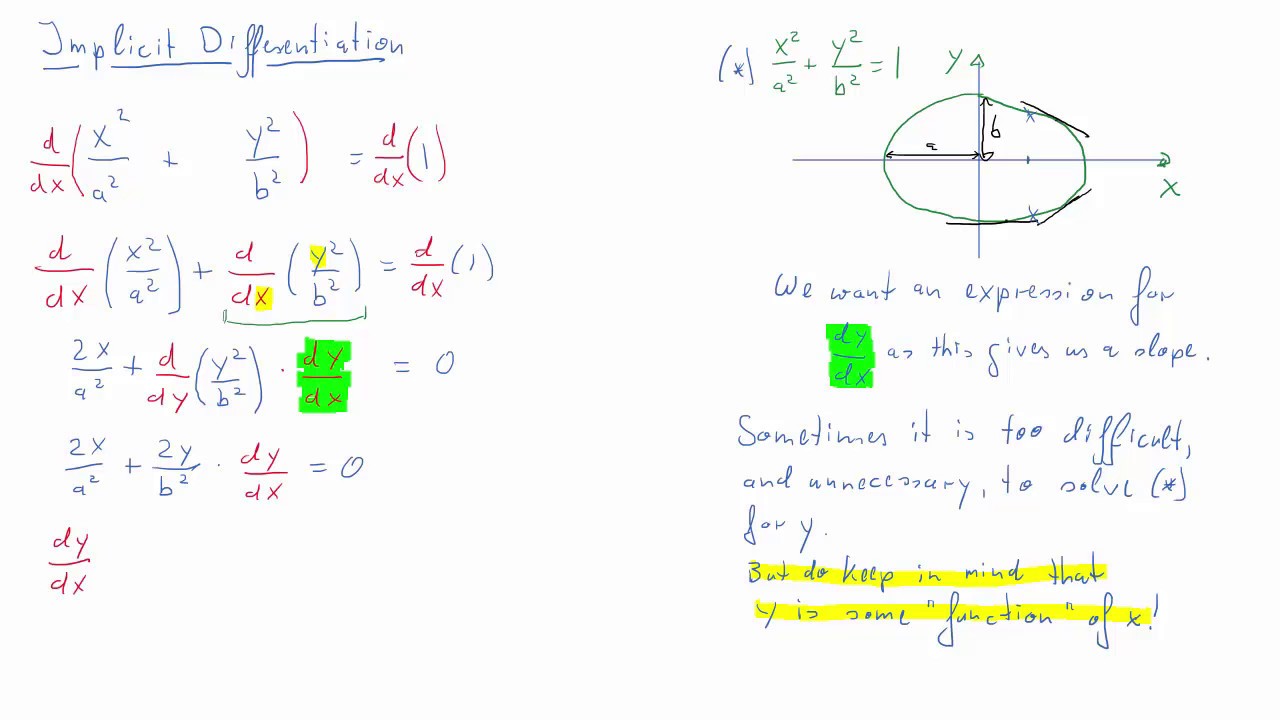 Implicit Differentiation
d/dx (x²/a² + y²/b²) = d/dx (1)
d/dx (x²/a²) + d/dx (y²/b²) = d/dx (1)
2x/a² + d/dy (y²/b²) · dy/dx = 0
2x/a² + 2y/b² · dy/dx = 0
dy/dx
(*) x²/a² + y²/b² = 1
y
b
a
x
x
x
We want an expression for
dy/dx as this gives us a slope.
Sometimes it is too difficult,
and unnecessary, to solve (*)
for y.
But do keep in mind that
y is some "function" of x!